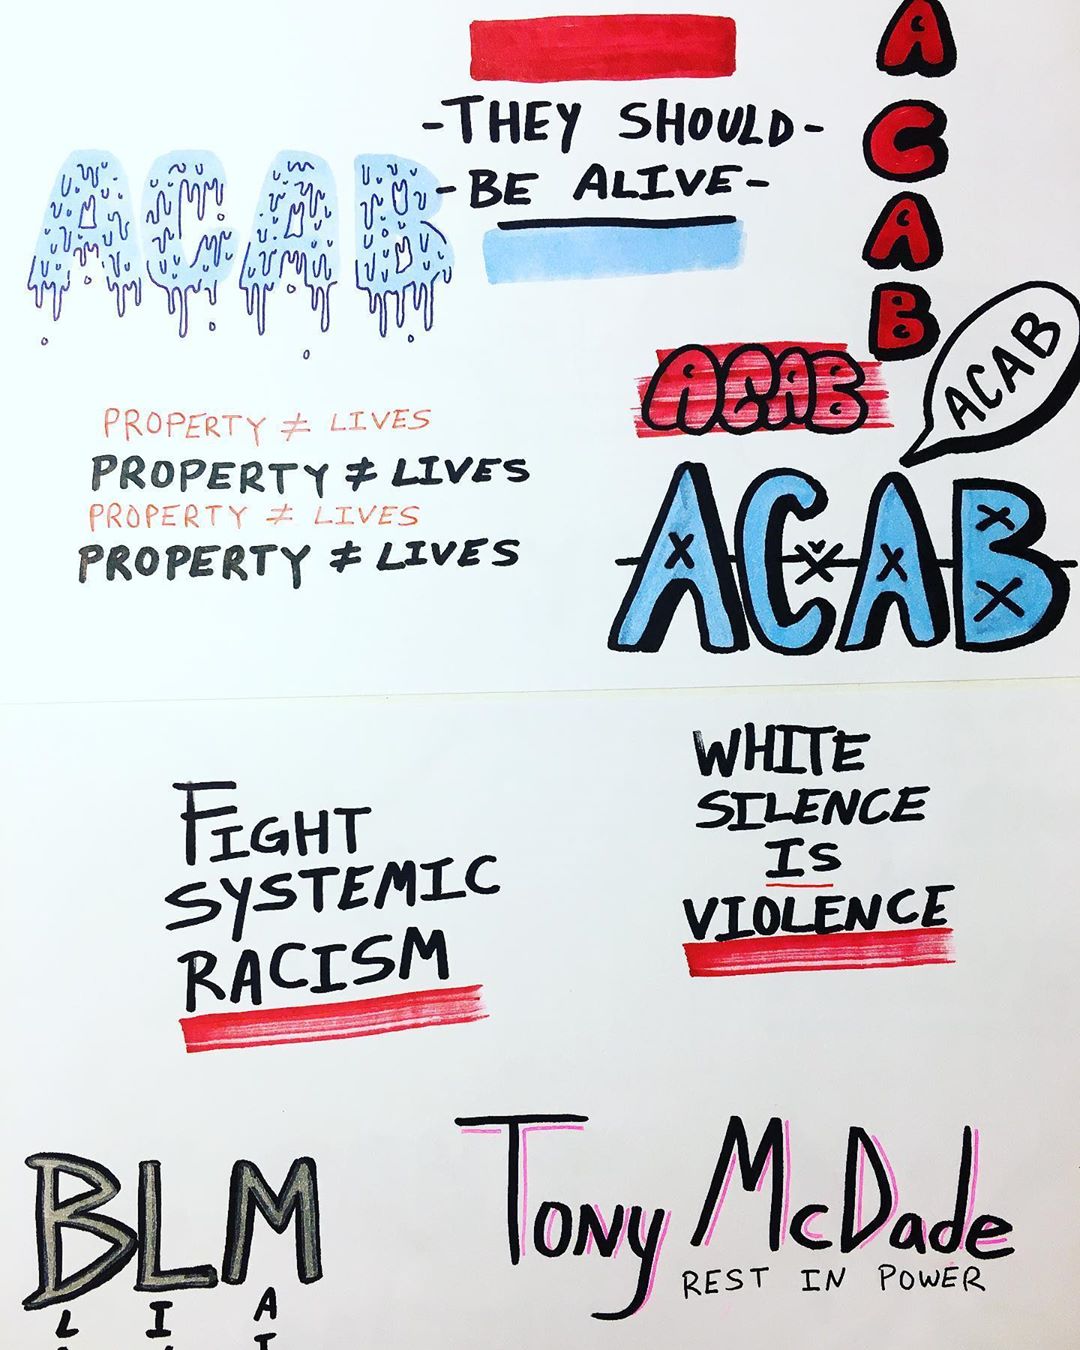 -THEY SHOULD-
-BE ALIVE-
ACAB
A
C
A
B
ACAB
ACAB
ACAB
PROPERTY ≠ LIVES
PROPERTY ≠ LIVES
PROPERTY ≠ LIVES
PROPERTY ≠ LIVES
FIGHT
SYSTEMIC
RACISM
WHITE
SILENCE
IS
VIOLENCE
BLM
L I A
Tony McDade
REST IN POWER